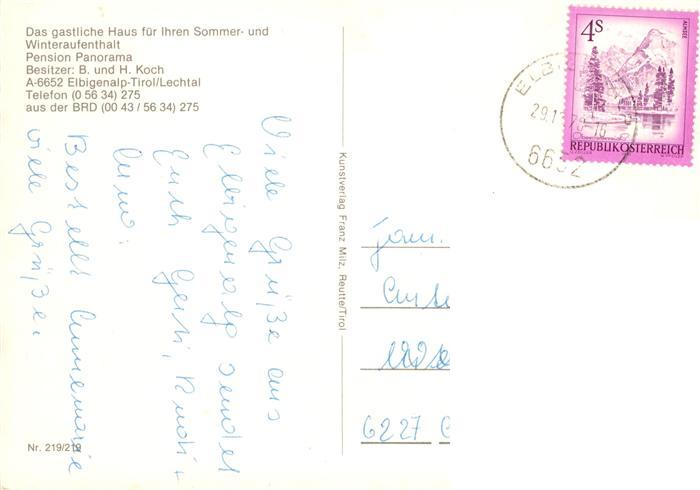 Das gastliche Haus für Ihren Sommer- und
Winteraufenthalt
Pension Panorama
Besitzer: B. und H. Koch
A-6652 Elbigenalp-Tirol/Lechtal
Telefon (0 56 34) 275
aus der BRD (00 43 / 56 34) 275
Viele Grüße aus
Elbigenalp sendet
Euch Gerti, Rudi +
Bestellt Annemarie
viele Grüße.
Nr. 219/219
Kunstverlag Franz Milz, Reutte/Tirol
4S
ALMSEE
REPUBLIK ÖSTERREICH
6652
Fam.
6227